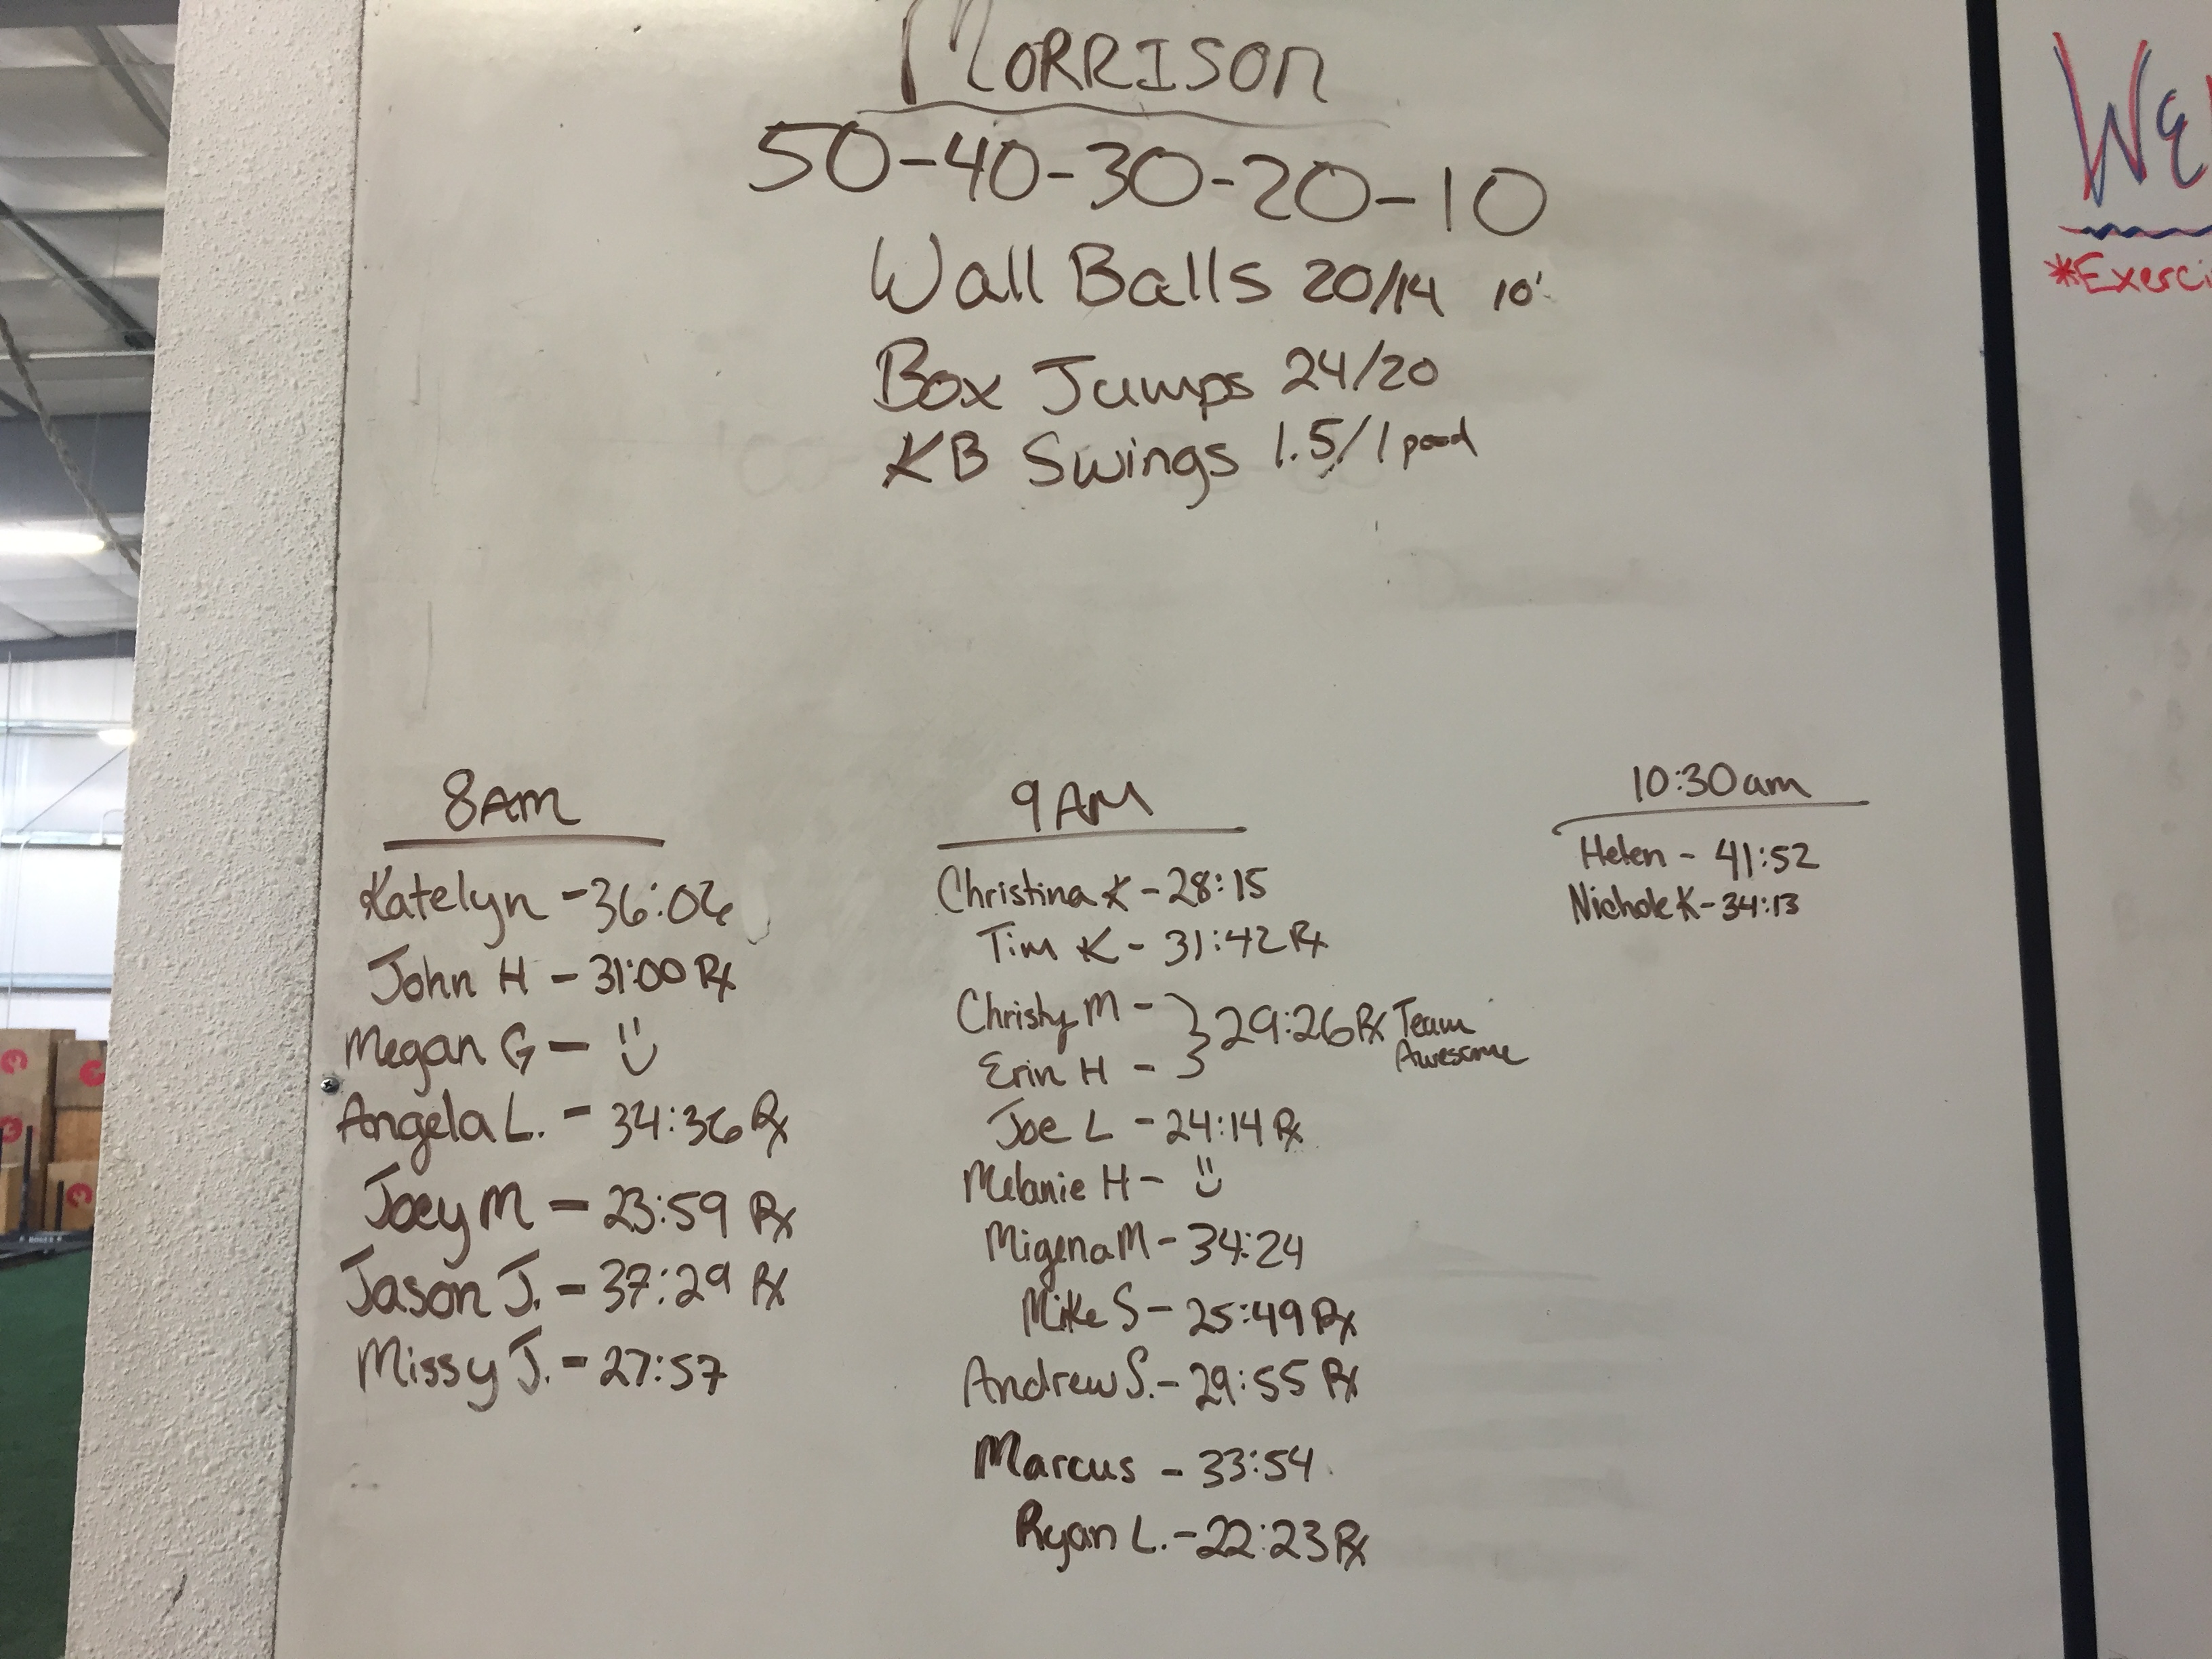 MORRISON
50-40-30-20-10
Wall Balls 20/14 10'
Box Jumps 24/20
KB Swings 1.5/1 pood
8AM
Katelyn - 36:06
John H - 31:00 Rx
Megan G - :)
Angela L. - 34:36 Rx
Joey M - 23:59 Rx
Jason J. - 37:29 Rx
Missy J. - 27:57
9AM
Christina K - 28:15
Tim K - 31:42 Rx
Christy M - } 29:26 Rx Team
Erin H - Awesome
Joe L - 24:14 Rx
Melanie H - :)
Migena M - 34:24
Mike S - 25:49 Rx
Andrew S. - 29:55 Rx
Marcus - 33:54
Ryan L. - 22:23 Rx
10:30am
Helen - 41:52
Nichole K - 34:13
*Exerci